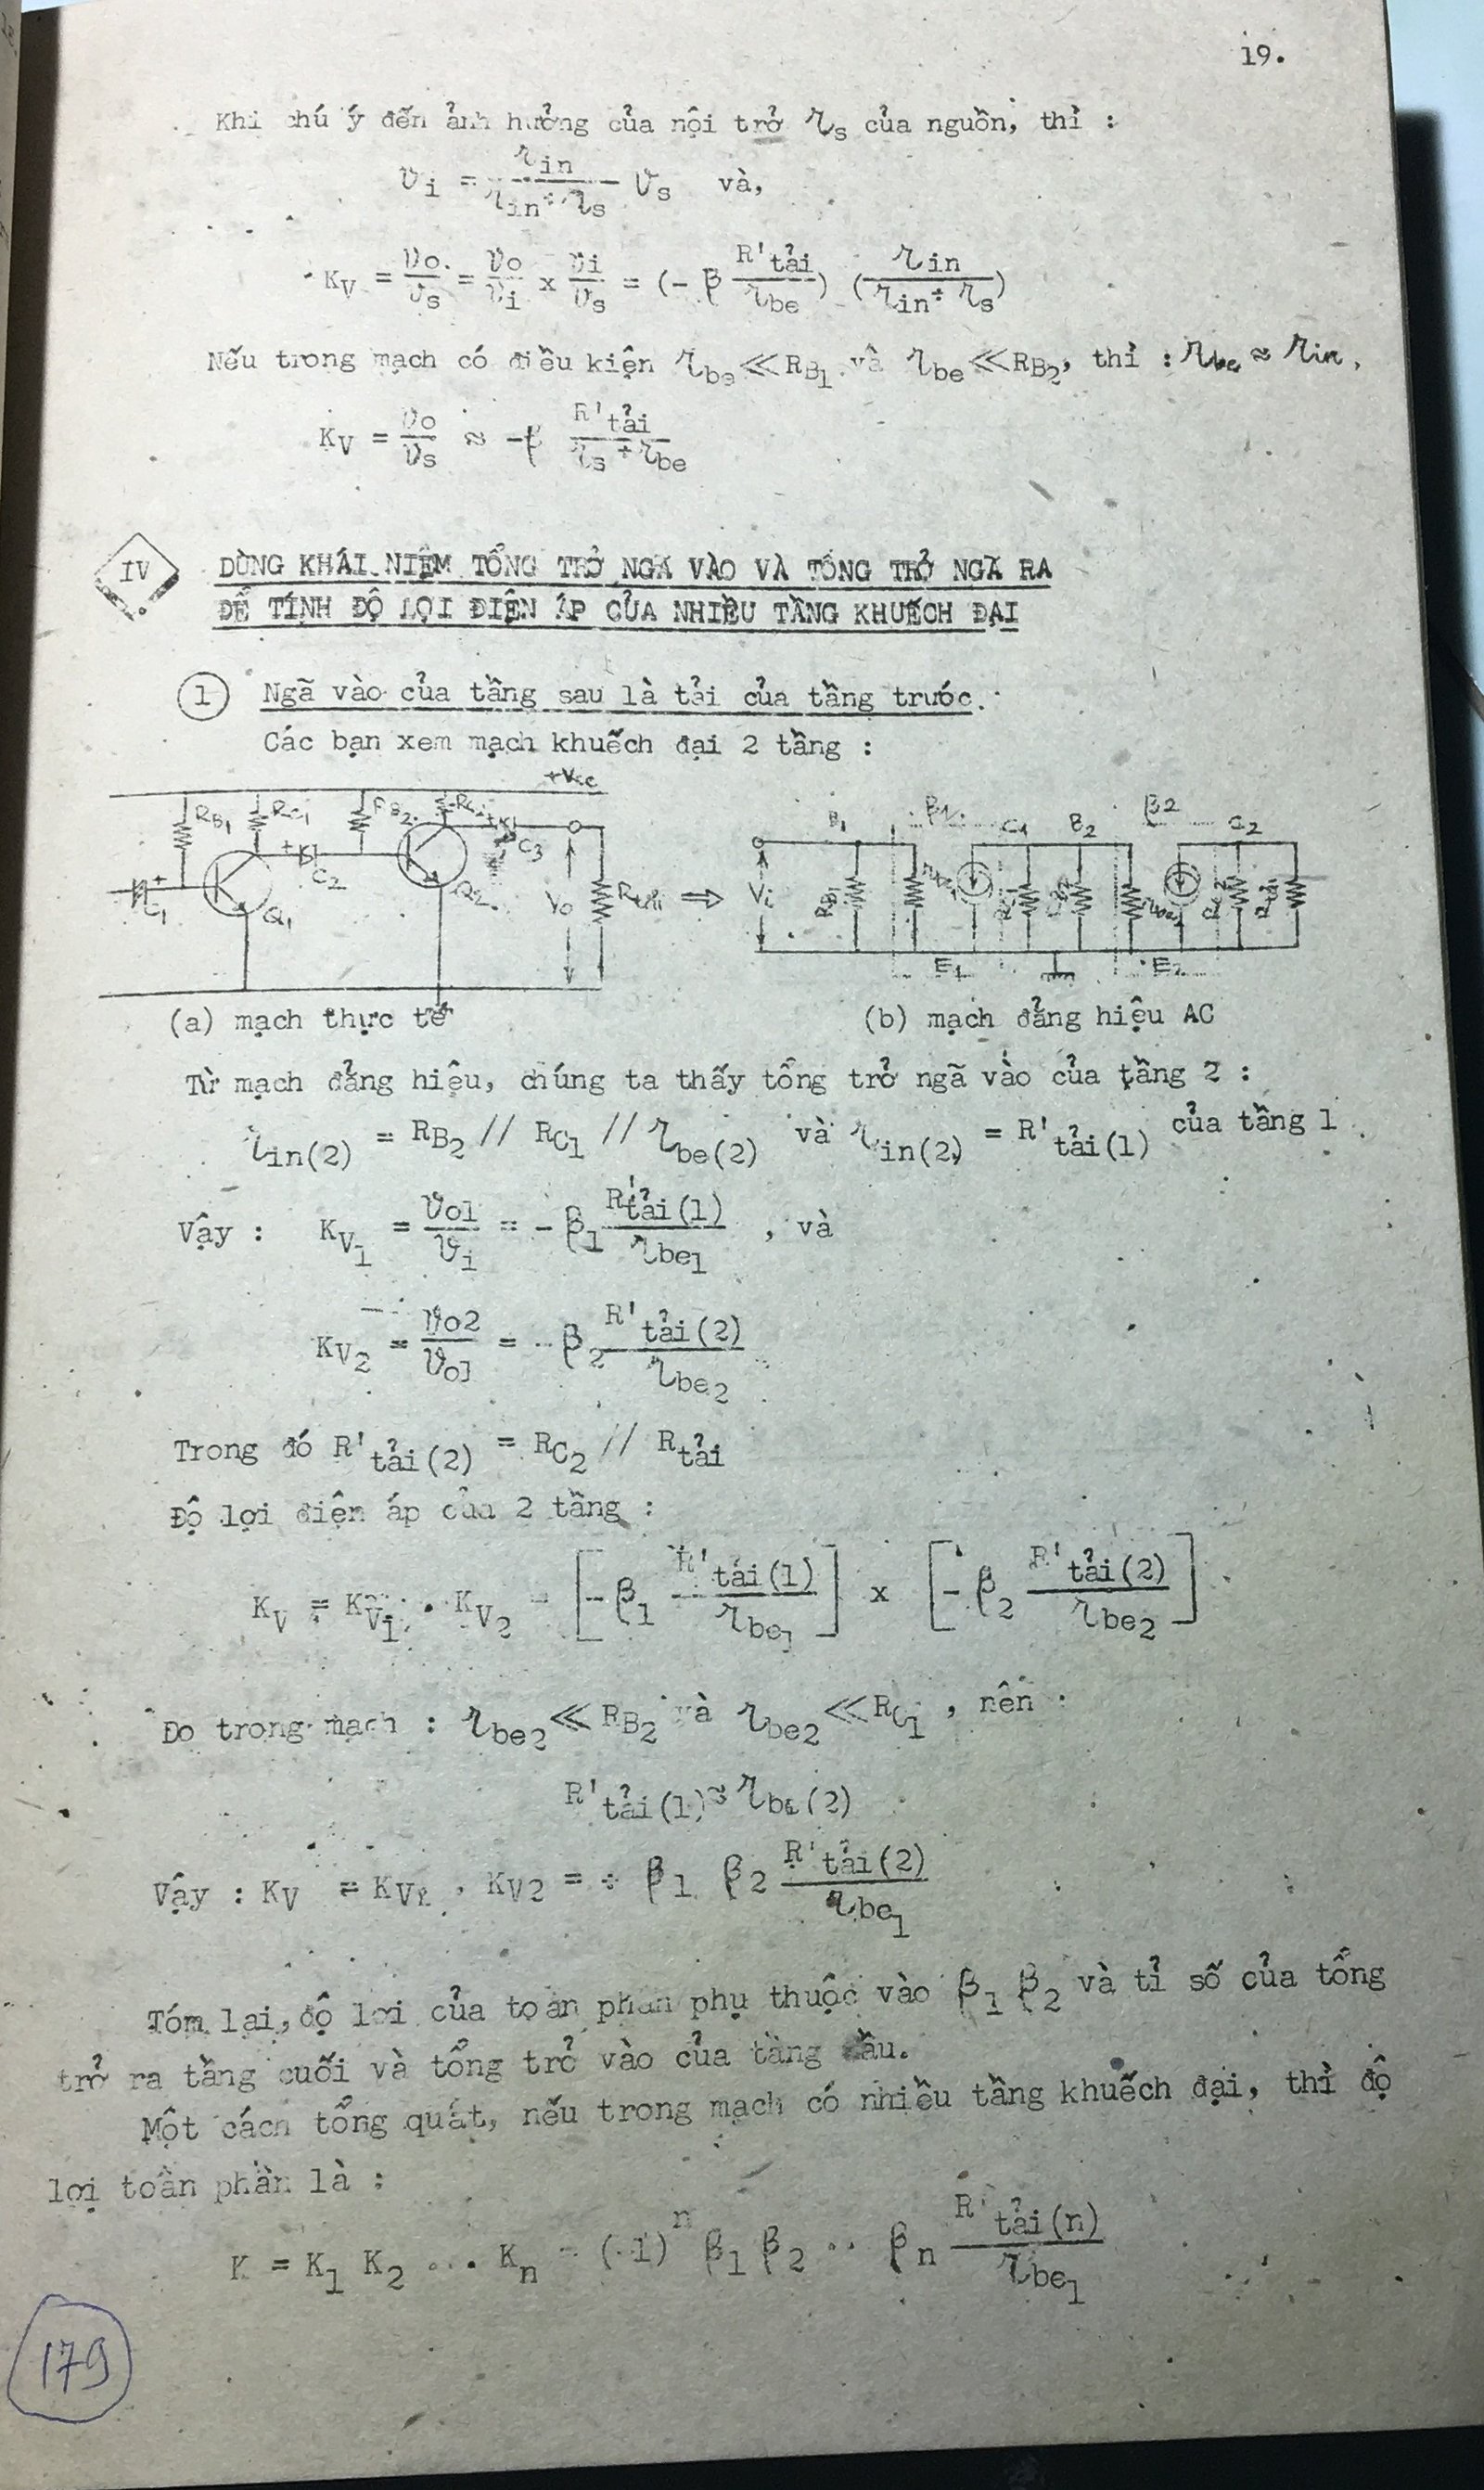 19.
Khi chú ý đến ảnh hưởng của nội trở rs của nguồn, thì :
vi = rin / (rin + rs) vs và,
KV = vo/vs = vo/vi x vi/vs = (-β R'tải / rbe) (rin / (rin + rs))
Nếu trong mạch có điều kiện rbe ≪ RB1 và rbe ≪ RB2, thì : rbe ≈ rin,
KV = vo/vs ≈ -β R'tải / (rs + rbe)
IV DÙNG KHÁI NIỆM TỔNG TRỞ NGÃ VÀO VÀ TỔNG TRỞ NGÃ RA
ĐỂ TÍNH ĐỘ LỢI ĐIỆN ÁP CỦA NHIỀU TẦNG KHUẾCH ĐẠI
1 Ngã vào của tầng sau là tải của tầng trước.
Các bạn xem mạch khuếch đại 2 tầng :
+Vcc
RB1 RC1 RB2 RC2
C1 C2 C3 Q1 Q2 Vo Rtải ⇒
B1 β1 C1 B2 β2 C2
Vi RB1 rbe1 RC1 RB2 rbe2 RC2 Rtải
E1 E2
(a) mạch thực tế (b) mạch đẳng hiệu AC
Từ mạch đẳng hiệu, chúng ta thấy tổng trở ngã vào của tầng 2 :
rin(2) = RB2 // RC1 // rbe(2) và rin(2) = R'tải(1) của tầng 1
Vậy : KV1 = vo1/vi = -β1 R'tải(1) / rbe1 , và
KV2 = vo2/vo1 = -β2 R'tải(2) / rbe2
Trong đó R'tải(2) = RC2 // Rtải
Độ lợi điện áp của 2 tầng :
KV = KV1 . KV2 = [-β1 R'tải(1) / rbe1] x [-β2 R'tải(2) / rbe2]
Do trong mạch : rbe2 ≪ RB2 và rbe2 ≪ RC1 , nên :
R'tải(1) ≈ rbe(2)
Vậy : KV = KV1 . KV2 = + β1 β2 R'tải(2) / rbe1
Tóm lại, độ lợi của toàn phần phụ thuộc vào β1 β2 và tỉ số của tổng
trở ra tầng cuối và tổng trở vào của tầng đầu.
Một cách tổng quát, nếu trong mạch có nhiều tầng khuếch đại, thì độ
lợi toàn phần là :
K = K1 K2 ... Kn = (-1)^n β1 β2 .. βn R'tải(n) / rbe1
179